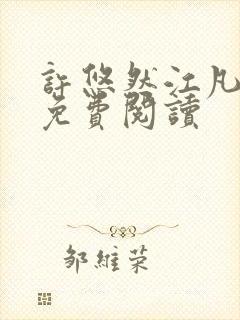 許悠然江凡
免費閱讀
邹維荣